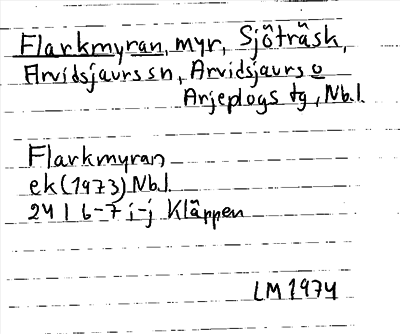 Flarkmyran, myr, Sjöträsk,
Arvidsjaurs sn, Arvidsjaurs o
Arjeplogs tg, Nbl.
Flarkmyran
ek (1973) Nbl.
24 I 6-7 i-j Kläppen
LM 1974